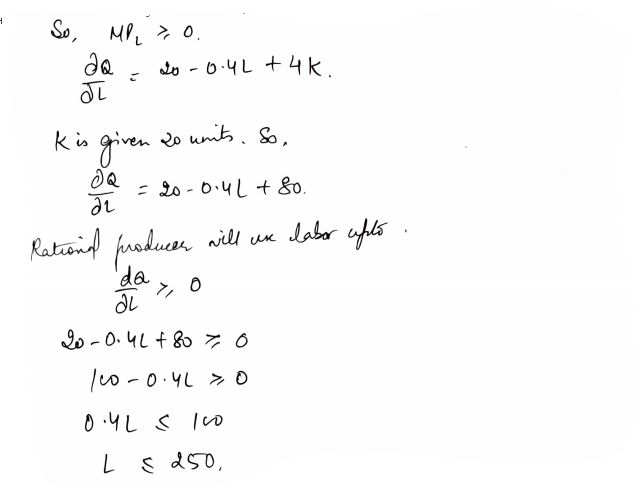 So, MP_L ≥ 0.
∂Q/∂L = 20 - 0.4L + 4K.
K is given 20 units. So,
∂Q/∂L = 20 - 0.4L + 80.
Rational producer will use labor upto.
dQ/∂L ≥ 0
20 - 0.4L + 80 ≥ 0
100 - 0.4L ≥ 0
0.4L ≤ 100
L ≤ 250.